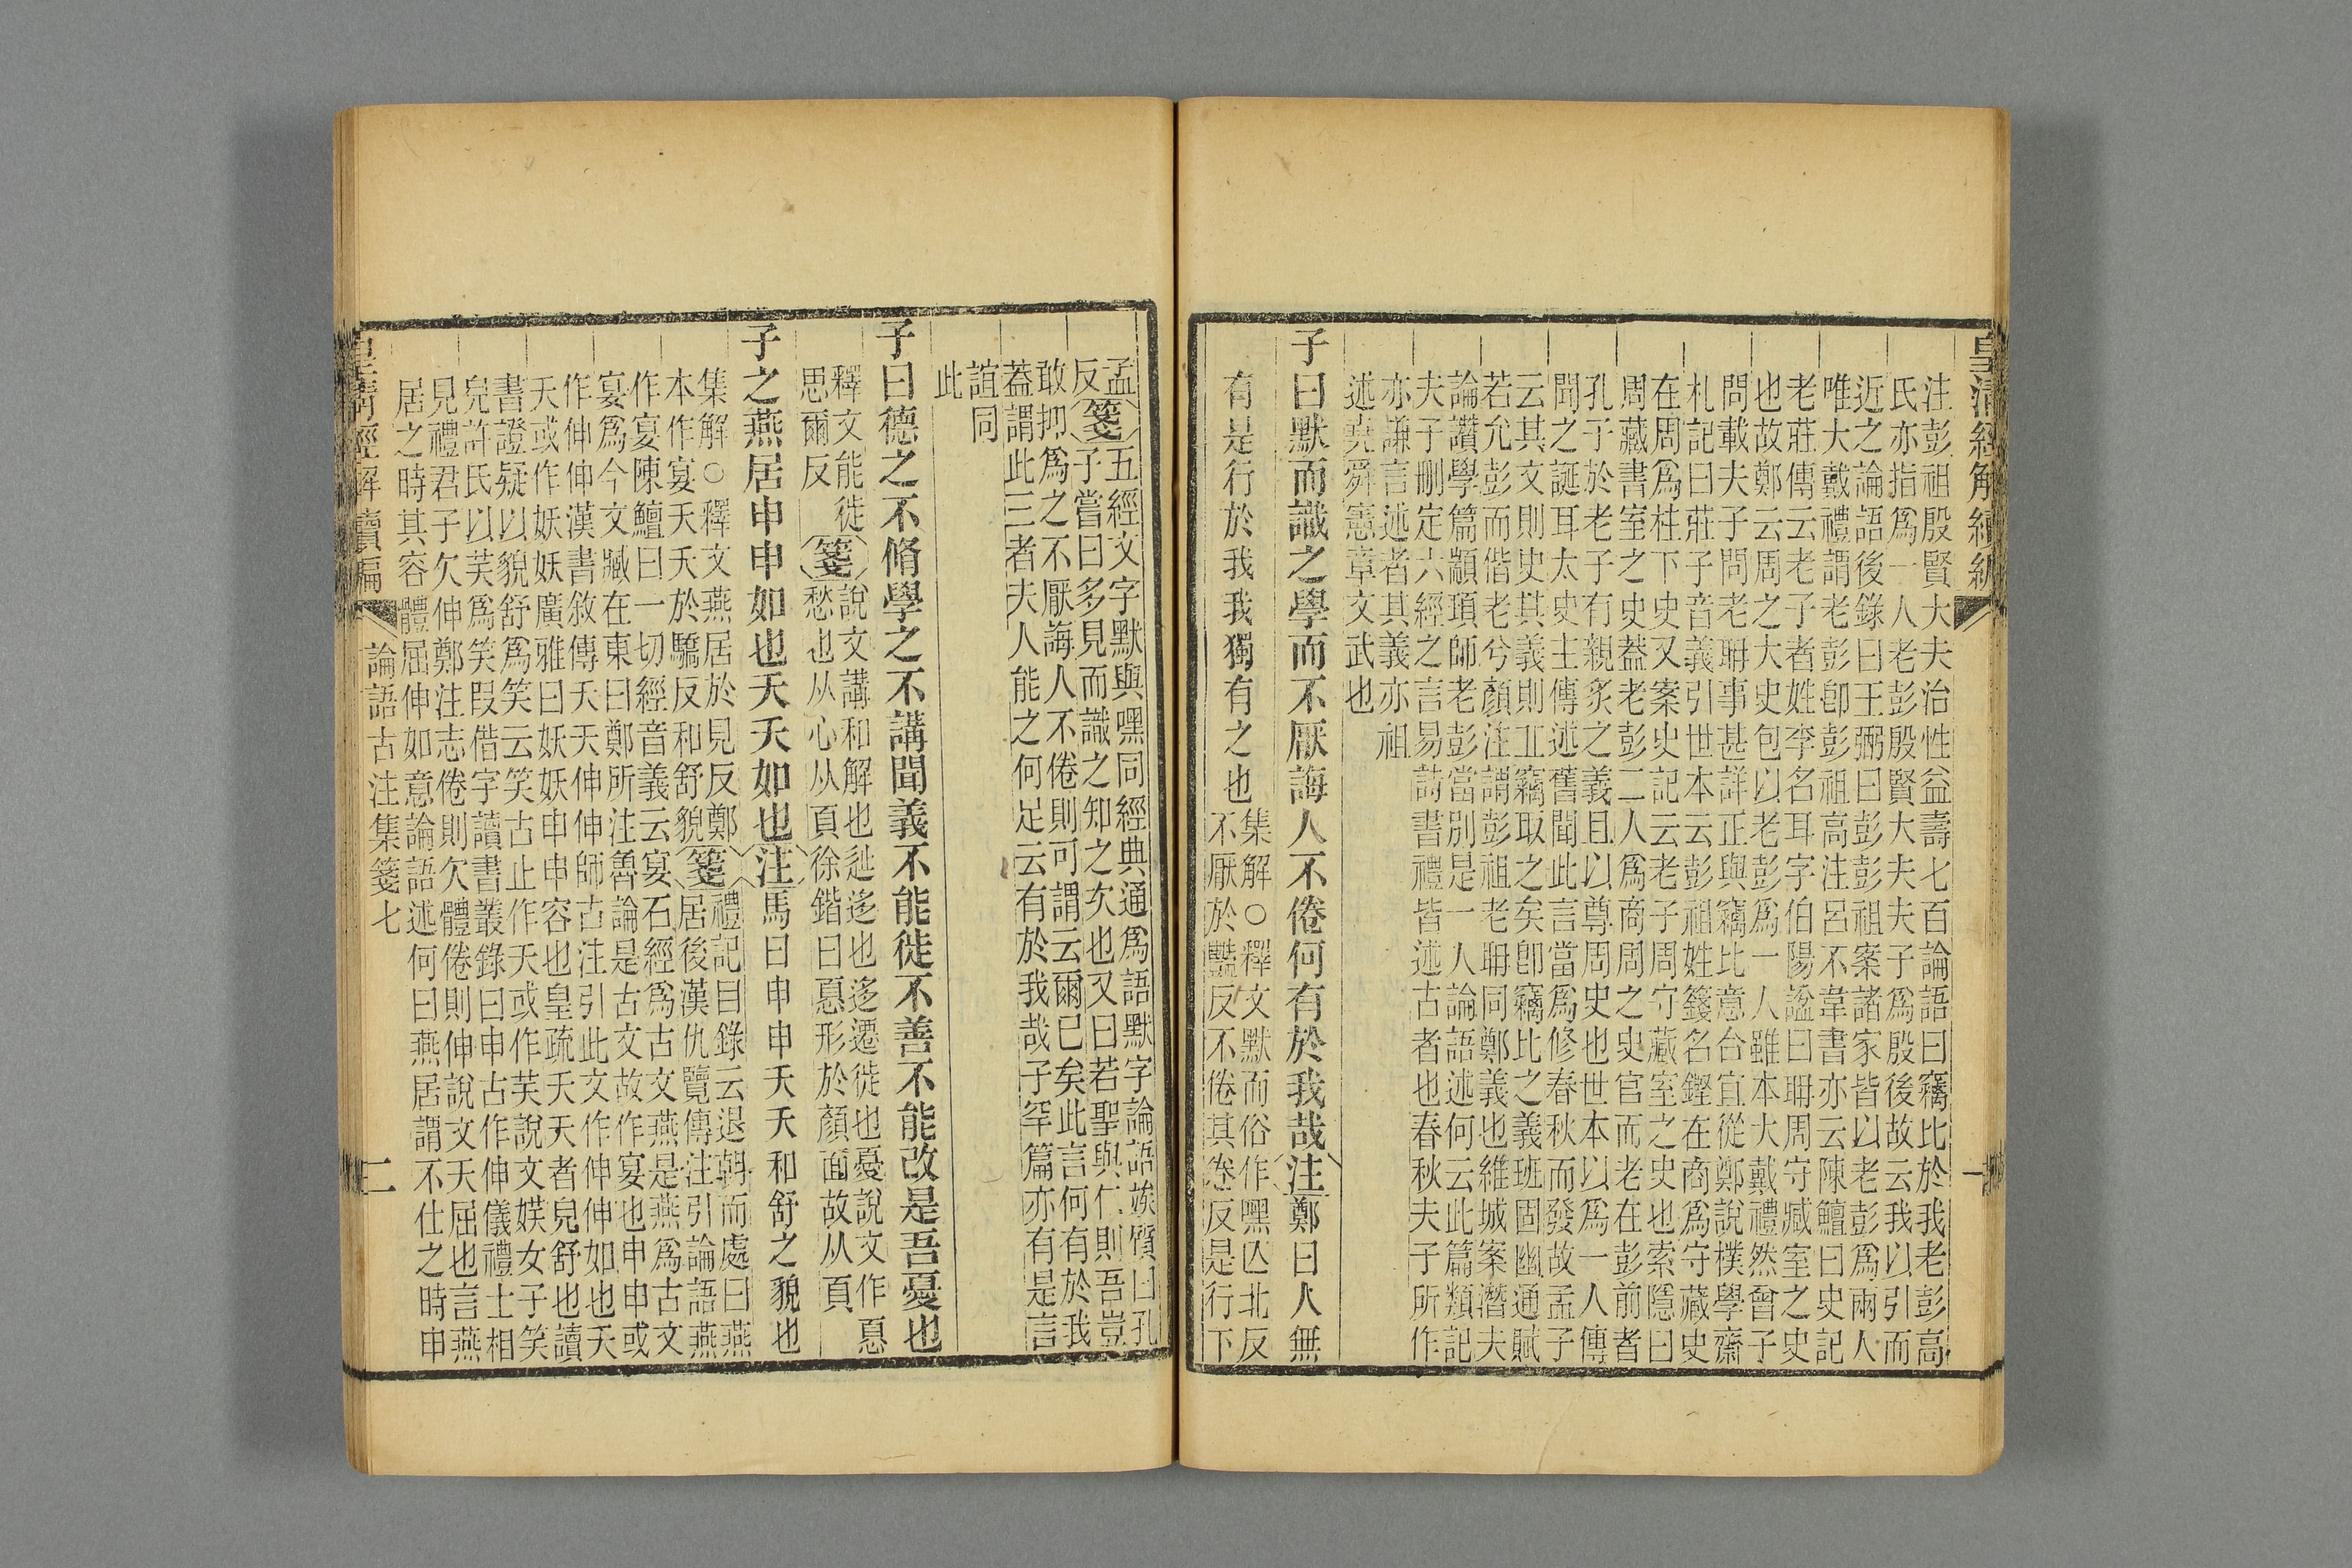 皇清經解續編
一
注彭祖殷賢大夫治性益壽七百論語曰竊比於我老彭高
氏亦指爲一人老彭殷賢大夫夫子爲殷後故云我以引而
近之論語後錄曰王弼曰彭彭祖案諸家皆以老彭爲兩人
唯大戴禮謂老彭卽彭祖高注呂不韋書亦云陳鱣曰史記
老莊傳云老子者姓李名耳字伯陽諡曰耼周守臧室之史
也故鄭云周之大史包以老彭爲一人雖本大戴禮然曾子
問載夫子問老耼事甚詳正與竊比意合宜從鄭說樸學齋
札記曰莊子音義引世本云彭祖姓籛名鏗在商爲守藏史
在周爲柱下史又案史記云老子周守藏室之史也索隱曰
周藏書室之史蓋老彭二人爲商周之史官而老在彭前者
孔子於老子有親炙之義且以尊周史也世本以爲一人傳
聞之誕耳太史主傳述舊聞此言當爲修春秋而發故孟子
云其文則史其義則丘竊取之矣卽竊比之義班固幽通賦
若允彭而偕老兮顏注謂彭祖老耼同鄭義也維城案潛夫
論讚學篇顓頊師老彭當別是一人論語述何云此篇類記
夫子刪定六經之言易詩書禮皆述古者也春秋夫子所作
亦謙言述者其義亦祖
述堯舜憲章文武也
子曰默而識之學而不厭誨人不倦何有於我哉注鄭曰人無
有是行於我我獨有之也
集解○釋文默而俗作嘿亾北反
不厭於豔反不倦其卷反是行下
孟箋五經文字默與嘿同經典通爲語默字論語竢質曰孔
反子嘗曰多見而識之知之次也又曰若聖與仁則吾豈
敢抑爲之不厭誨人不倦則可謂云爾已矣此言何有於我
蓋謂此三者夫人能之何足云有於我哉子罕篇亦有是言
誼同
此
子曰德之不脩學之不講聞義不能徙不善不能改是吾憂也
釋文能徙箋說文講和解也辿迻也迻遷徙也憂說文作惪
思爾反愁也从心从頁徐鍇曰惪形於顏面故从頁
子之燕居申申如也夭夭如也注馬曰申申夭夭和舒之貌也
集解○釋文燕居於見反鄭箋禮記目錄云退朝而處曰燕
本作宴夭夭於驕反和舒貌居後漢仇覽傳注引論語燕
作宴陳鱣曰一切經音義云宴石經爲古文燕是燕爲古文
宴爲今文臧在東曰鄭所注魯論是古文故作宴也申申或
作伸伸漢書敘傳夭夭伸伸師古注引此文作伸伸如也夭
夭或作妖妖廣雅曰妖妖申申容也皇疏夭夭者皃舒也讀
書證疑以貌舒爲笑云笑古止作夭或作芺說文娱女子笑
皃許氏以芺爲笑叚借字讀書叢錄曰申古作伸儀禮士相
見禮君子欠伸鄭注志倦則欠體倦則伸說文夭屈也言燕
居之時其容體屈伸如意論語述何曰燕居謂不仕之時申
皇清經解續編
論語古注集箋七
二